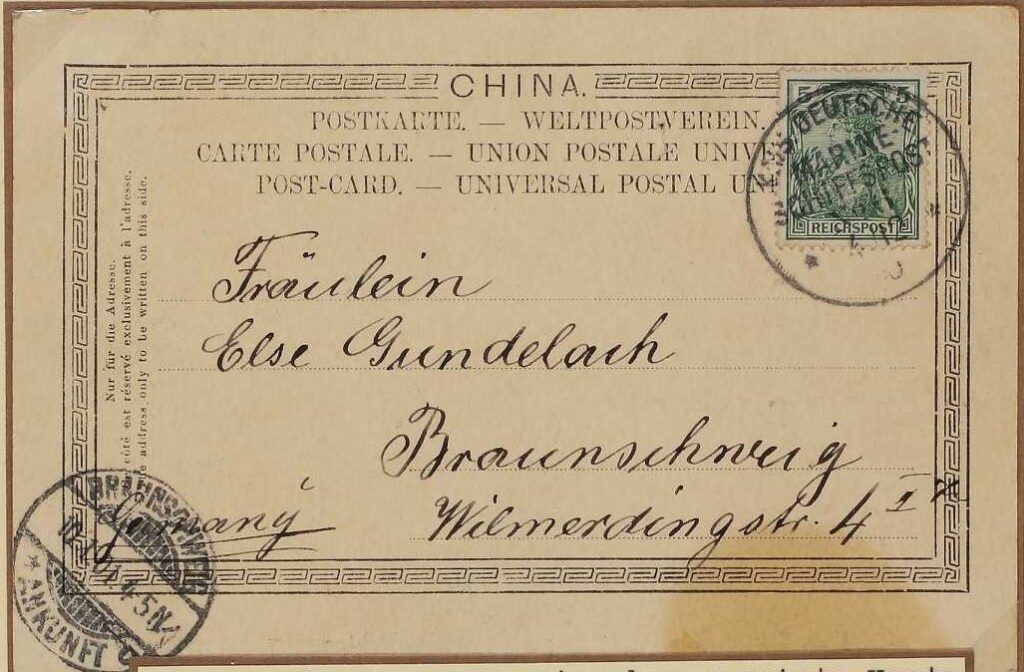 CHINA.
POSTKARTE. — WELTPOSTVEREIN.
CARTE POSTALE. — UNION POSTALE UNIV
POST-CARD. — UNIVERSAL POSTAL UN
Nur für die Adresse.
côté est réservé exclusivement à l'adresse.
address only to be written on this side.
5 5
REICHSPOST
DEUTSCHE
MARINE-
SCHIFFSPOST
12
Fräulein
Else Gundelach
Braunschweig
Germany Wilmerdingstr. 4 I
BRAUNSCHWEIG
4-5N
* ANKUNFT